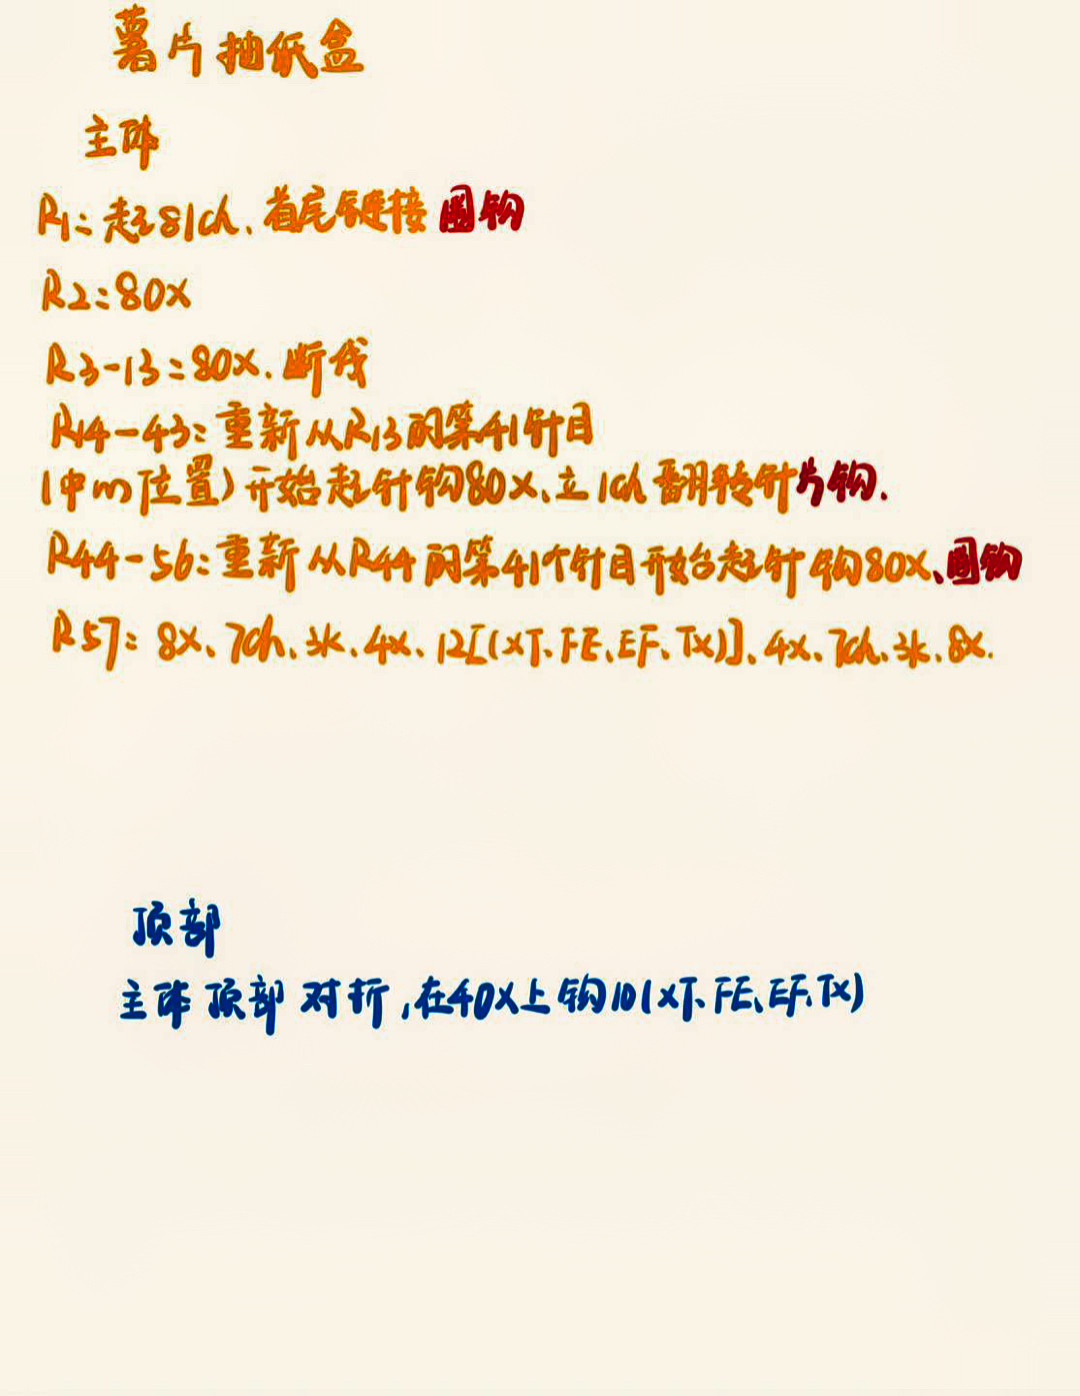 薯片抽纸盒
主体
R1:起81ch、首尾链接圈钩
R2:80X
R3-13:80X.断线
R14-43:重新从R13的第41针目
(中心位置)开始起针钩80X、立1ch翻转针片钩.
R44-56:重新从R44的第41个针目开始起针钩80X、圈钩
R57:8X、7ch、狄、4X、12[(XT、FE、EF、TX)]、4X、7ch、狄、8X.
顶部
主体顶部对折,在40X上钩10(XT、FE、EF、TX)